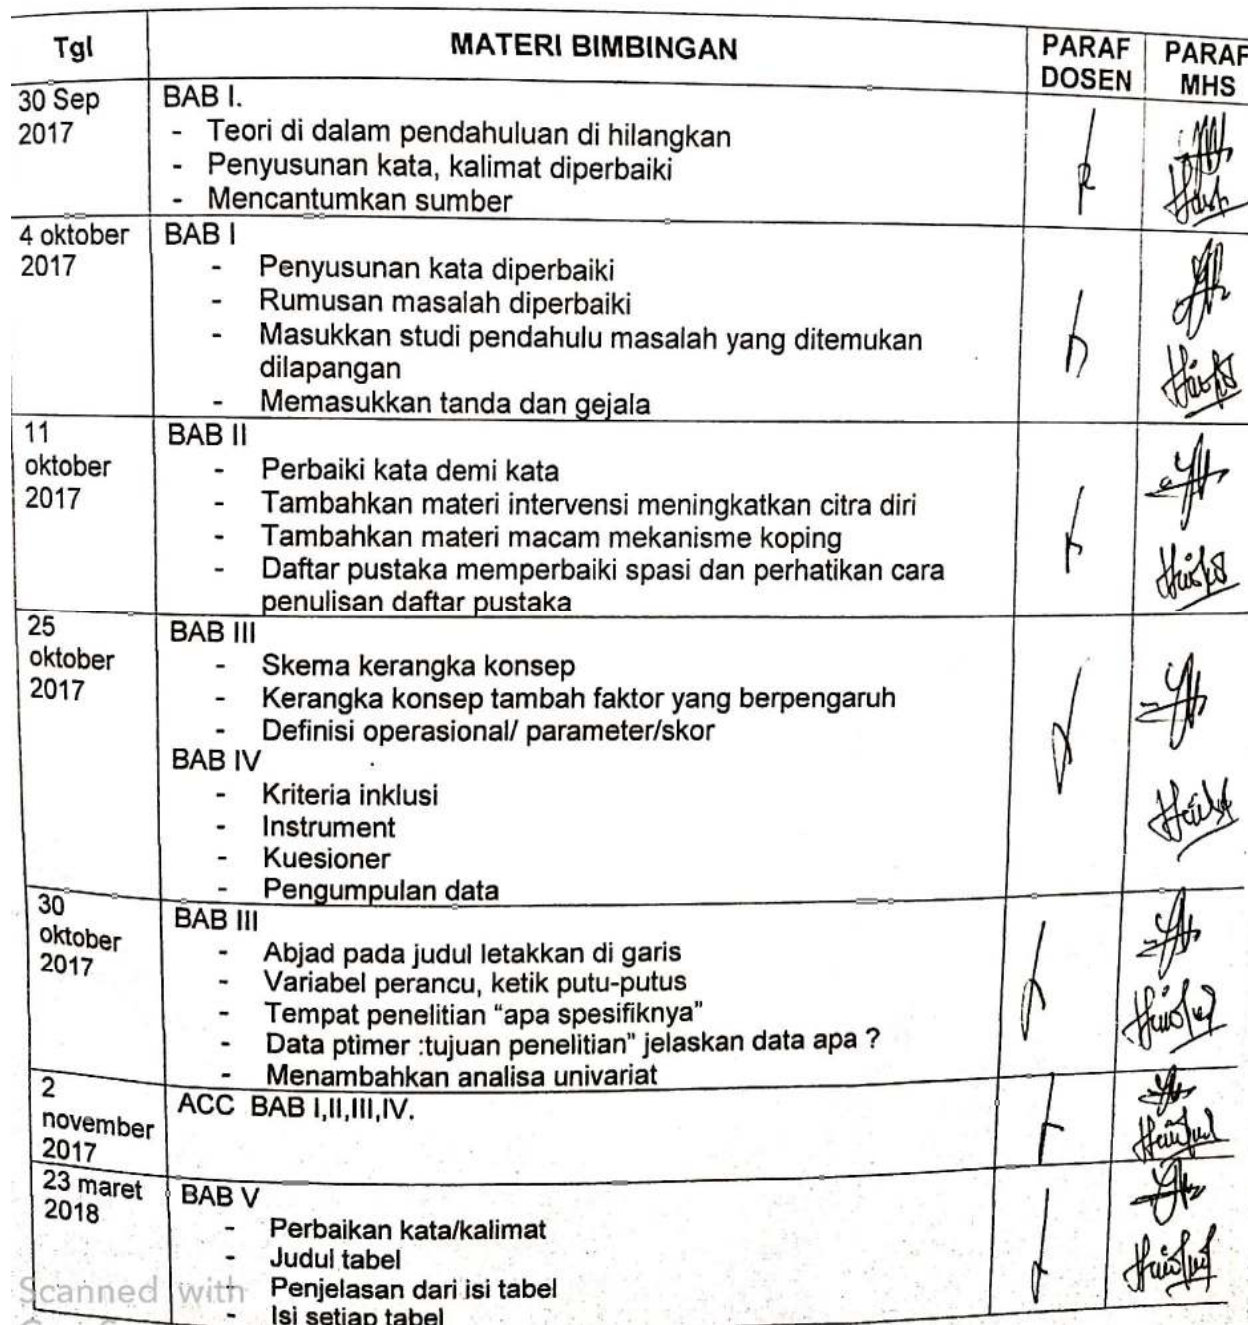 Tgl MATERI BIMBINGAN PARAF DOSEN PARAF MHS
30 Sep 2017
BAB I.
- Teori di dalam pendahuluan di hilangkan
- Penyusunan kata, kalimat diperbaiki
- Mencantumkan sumber
4 oktober 2017
BAB I
- Penyusunan kata diperbaiki
- Rumusan masalah diperbaiki
- Masukkan studi pendahulu masalah yang ditemukan
dilapangan
- Memasukkan tanda dan gejala
11 oktober 2017
BAB II
- Perbaiki kata demi kata
- Tambahkan materi intervensi meningkatkan citra diri
- Tambahkan materi macam mekanisme koping
- Daftar pustaka memperbaiki spasi dan perhatikan cara
penulisan daftar pustaka
25 oktober 2017
BAB III
- Skema kerangka konsep
- Kerangka konsep tambah faktor yang berpengaruh
- Definisi operasional/ parameter/skor
BAB IV
- Kriteria inklusi
- Instrument
- Kuesioner
- Pengumpulan data
30 oktober 2017
BAB III
- Abjad pada judul letakkan di garis
- Variabel perancu, ketik putu-putus
- Tempat penelitian “apa spesifiknya”
- Data ptimer :tujuan penelitian” jelaskan data apa ?
- Menambahkan analisa univariat
2 november 2017
ACC BAB I,II,III,IV.
23 maret 2018
BAB V
- Perbaikan kata/kalimat
- Judul tabel
- Penjelasan dari isi tabel
- Isi setiap tabel
Scanned with